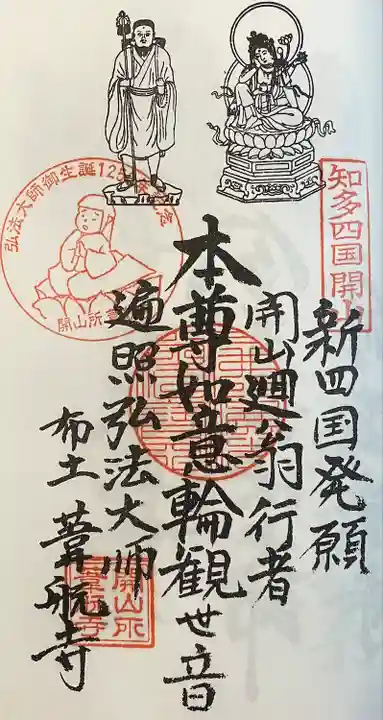 知多四国開山
新四国発願
開山廻翁行者
本尊如意輪観世音
遍照弘法大師
布土 葦航寺
弘法大師御生誕1250年記念
開山所
開山所
葦航寺